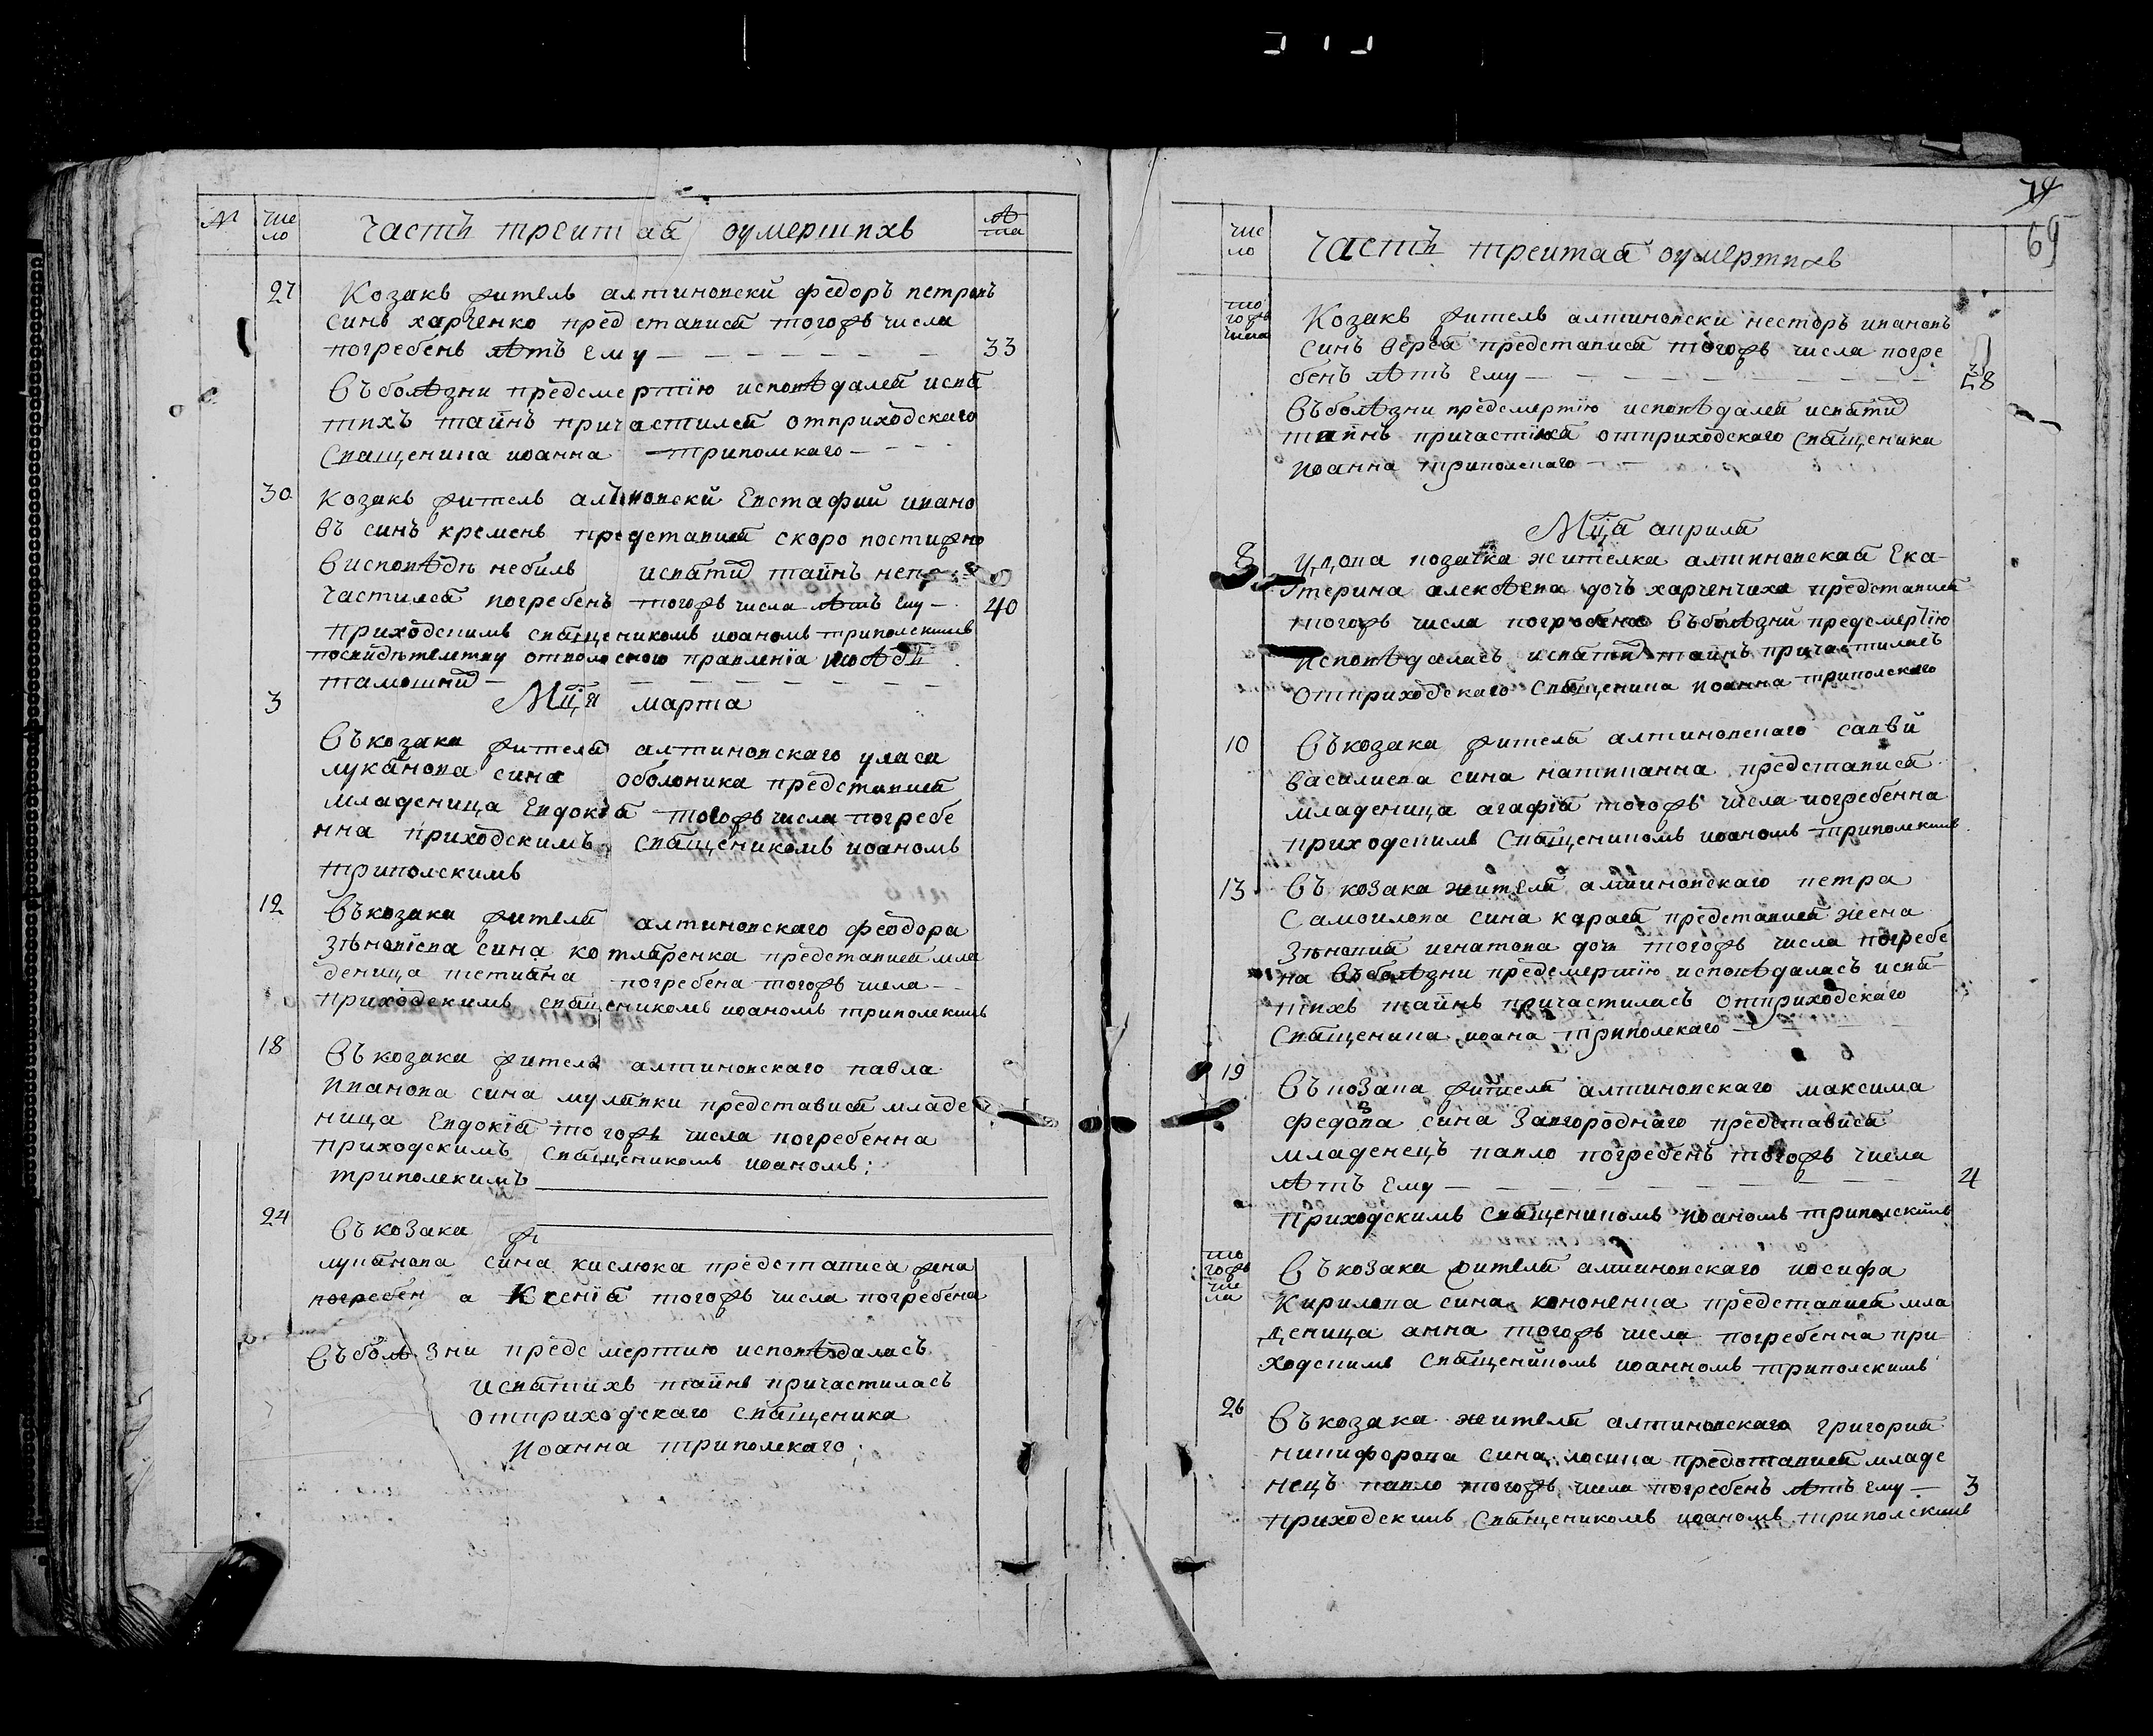 № число Часть треитая оумершихъ лѣта
27 Козакъ житель алтиновски федоръ петровъ
синъ харченко представися тогожъ числа
погребенъ лѣтъ ему — 33
Въ болѣзни предсмертїю исповѣдался исвя
тихъ таинъ причастился отприходскаго
Священика иоанна триполскаго —
30 Козакъ житель алтиновски Евстафий ивано
въ синъ кремень представися скоро постижно
Висповѣдѣ небилъ исвятид таинъ непри
частился погребенъ тогожъ числа лѣтъ ему — 40
приходскимъ священикомъ иоаномъ триполскимъ
тамошнид —
3 Мц҃а марта
Въ козака жителя алтиновскаго уласа
лукянова сина оболоника представися
младеница Евдокїя тогожъ числа погребе
нна приходскимъ Священикомъ иоаномъ
триполскимъ
12 Въ козака жителя алтиновскаго феодора
зѣновїева сина котляренка представися мла
деница тетиана погребена тогожъ числа —
приходскимъ священикомъ иоаномъ триполскимъ
18 Въ козака жителя алтиновскаго павла
Иванова сина мулявки представися младе
ница Евдокїя тогожъ числа погребенна
приходскимъ Священикомъ иоаномъ:
триполскимъ
24 Въ козака ж
лукянова сина кислюка представися жена
погребен а Ксенїя тогожъ числа погребена
Въ болѣзни предсмертию исповѣдалась
исвятихъ таинъ причастилась
отприходскаго священика
Иоанна триполскаго;
74
69
число Часть треитая оумершихъ
тогожъ числа Козакъ житель алтиновски несторъ ивановъ
синъ верея представися тогожъ числа погре
бенъ лѣтъ ему — 58
Въ болѣзни предсмертїю исповѣдался исвятид
таинъ причастился отприходскаго Священика
Иоанна триполскаго —
Мц҃а априля
8 удова козачка жителка алтиновская Ека-
терина алексѣева дочъ харченчиха представися
тогожъ числа погребена въ болѣзни предсмертїю
исповѣдалась исвятид таинъ причастилась
отприходскаго Священика Иоанна триполскаго
10 Въ козака жителя алтиновскаго савви
василиева сина представися
младеница агафїя тогожъ числа погребенна
приходскимъ Священикомъ иоаномъ триполскимъ
13 Въ козака жителя алтиновскаго петра
Самоилова сина карася представися жена
Зѣновия игнатова дочъ тогожъ числа погребе
на Въ болѣзни предсмертїю исповѣдалась исвя
тихъ таинъ причастилась отприходскаго
Священика иоана триполскаго —
19 Въ козака жителя алтиновскаго максима
федова сина Загороднаго представися
младенецъ павло погребенъ тогожъ числа
лѣтъ ему — 4
приходскимъ Священикомъ Иоаномъ триполскимъ
тогожъ числа Въ козака жителя алтиновскаго иосифа
Кирилова сина кононенка представися мла
деница анна тогожъ числа погребенна при
ходскимъ Священикомъ иоанномъ триполскимъ
26 Въ козака жителя алтиновскаго григория
никифорова сина лосика представися младе
нецъ павло тогожъ числа погребенъ лѣтъ ему — 3
приходскимъ Священикомъ иоаномъ триполскимъ